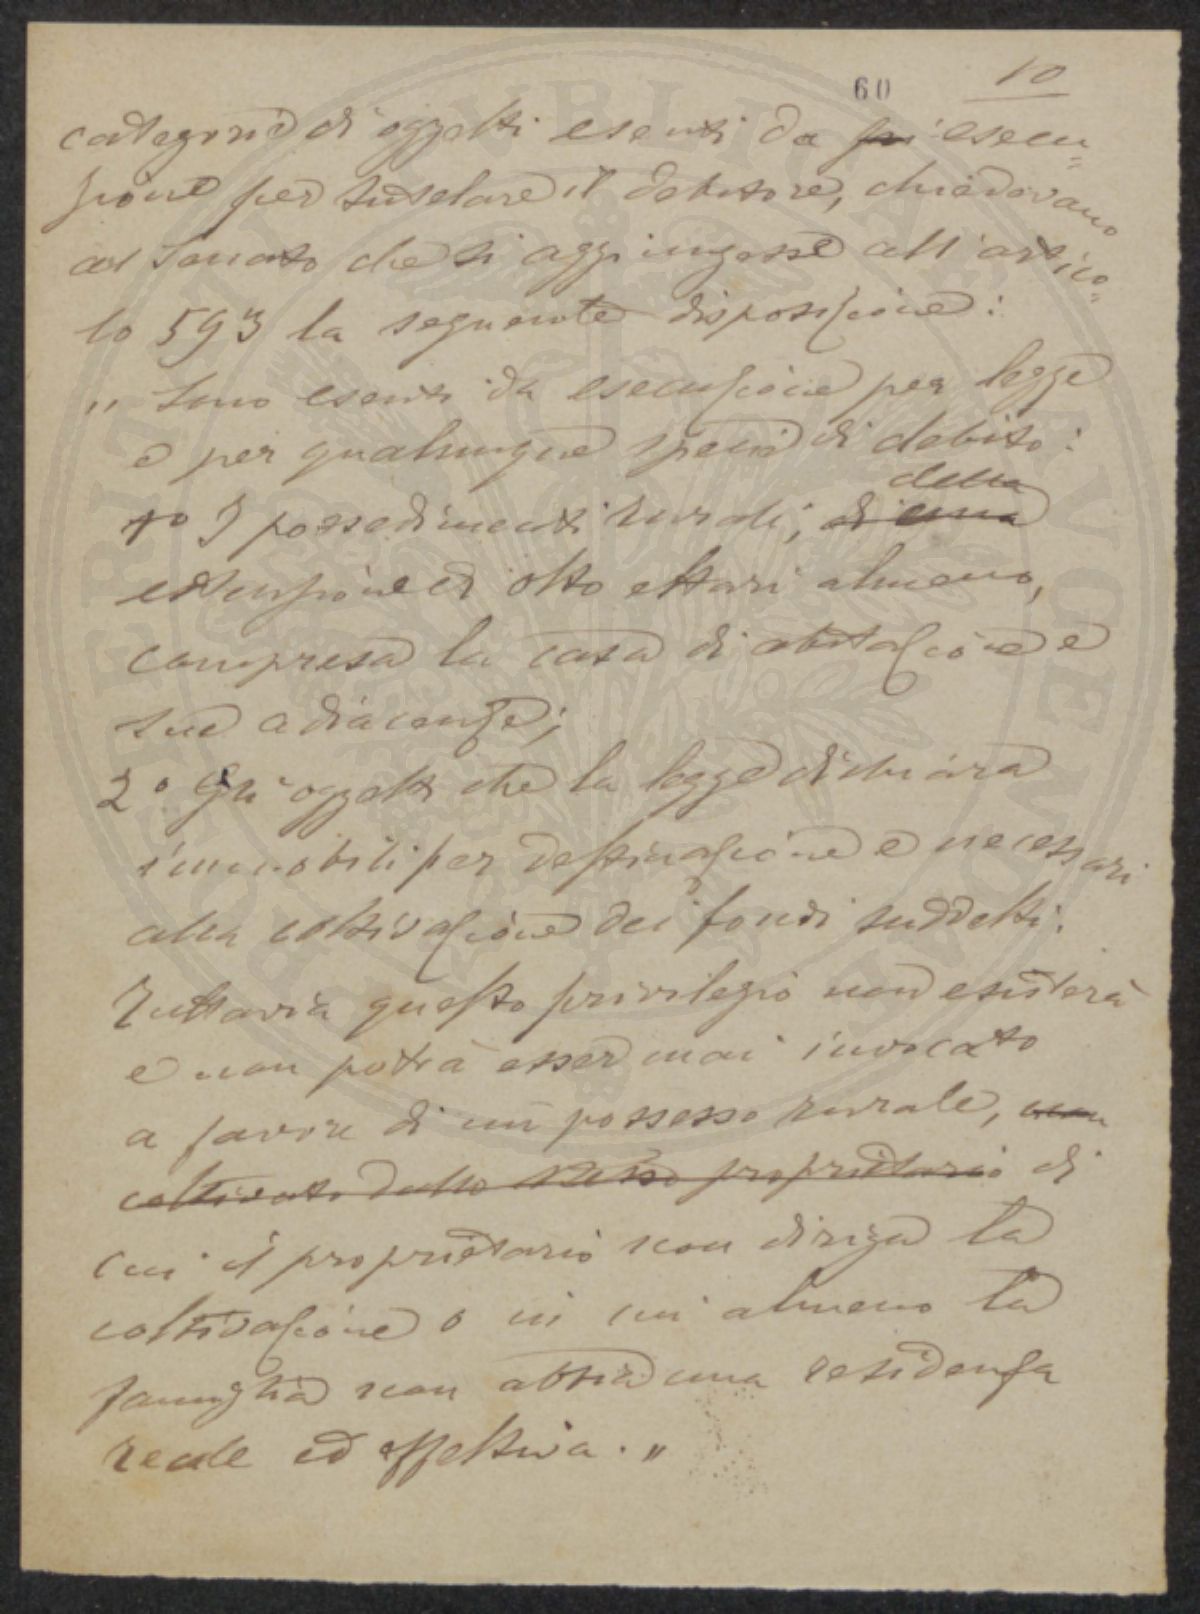 60
10
categorie di oggetti esenti da pi esecu=
zione per tutelare il debitore, chiedevano
al Senato che si aggiungesse all'artico=
lo 593 la seguente disposizione:
"Sono esenti da esecuzione per legge
e per qualunque specie di debito:
1o I possedimenti rurali, di una
della
estensione di otto ettari almeno,
compresa la casa di abitazione e
sue adiacenze;
2o Gli oggetti che la legge dichiara
immobili per destinazione e necessari
alla coltivazione dei fondi suddetti.
Tuttavia questo privilegio non esisterà
e non potrà esser mai invocato
a favore di un possesso rurale, non
coltivato dallo stesso proprietario di
cui il proprietario non diriga la
coltivazione o in cui almeno la
famiglia non abbia una residenza
reale ed effettiva."